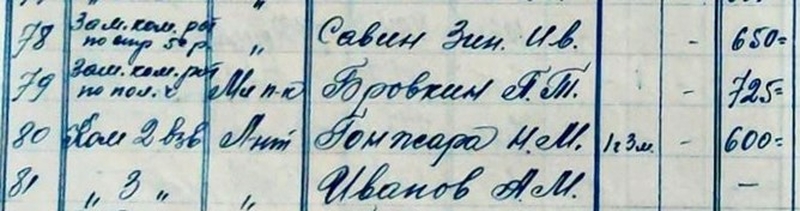 78 Зам. ком. рот по стр 5 р. " Савин Зин. Ив. - 650=
79 Зам. ком. рот по пол. ч. Мл п-к Бровкин П. Т. - 725=
80 Ком 2 взв Л-нт Гонжара Н. М. 1г 3м. - 600=
81 " 3 " " Иванов А. М. —